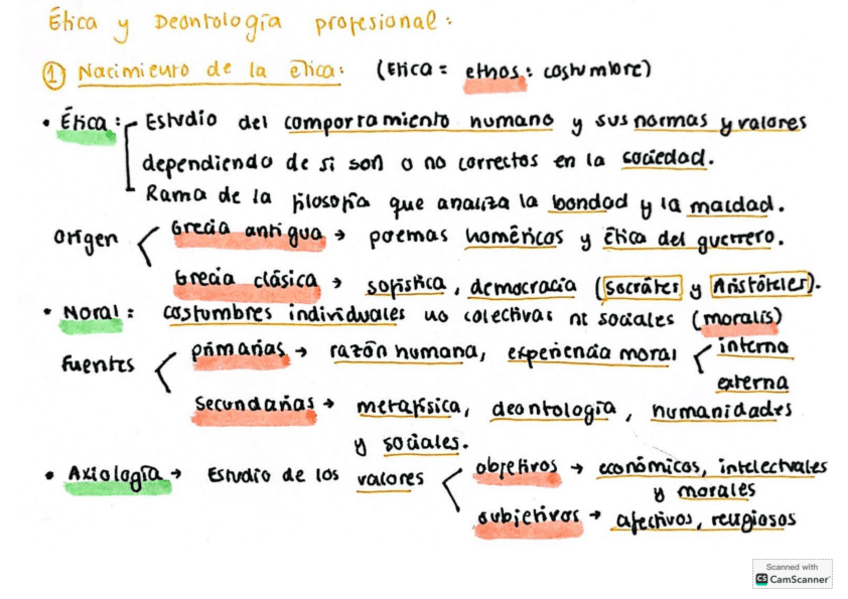 Ética y Deontología profesional:
① Nacimiento de la ética: (Etica = ethos: costumbre)
• Ética: Estudio del comportamiento humano y sus normas y valores
dependiendo de si son o no correctos en la sociedad.
Rama de la filosofía que analiza la bondad y la maldad.
origen Grecia antigua → poemas homéricos y ética del guerrero.
Grecia clásica → sofística, democracia (Socrátes y Aristóteles).
• Moral: costumbres individuales no colectivas ni sociales (moralis)
fuentes primarias → razón humana, experiencia moral interna
externa
Secundarias → metafísica, deontología, humanidades
y sociales.
• Axiología → Estudio de los valores objetivos → económicos, intelectuales
y morales
subjetivos → afectivos, religiosos
Scanned with
CS CamScanner